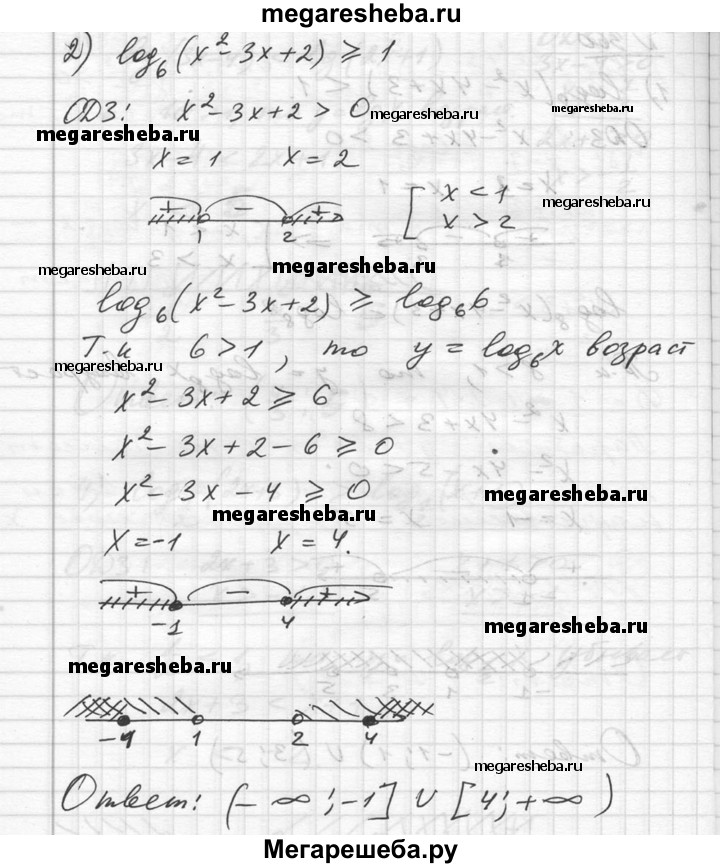 megaresheba.ru
2) log₆(x²-3x+2) ⩾ 1
ОДЗ: x²-3x+2 > 0
megaresheba.ru
megaresheba.ru
megaresheba.ru
x = 1 x = 2
+ - +
1 2
[ x < 1
x > 2
megaresheba.ru
megaresheba.ru
megaresheba.ru
log₆(x²-3x+2) ⩾ log₆6
Т-к 6 > 1, то y = log₆x возраст
megaresheba.ru
x²-3x+2 ⩾ 6
x²-3x+2-6 ⩾ 0
x²-3x-4 ⩾ 0
megaresheba.ru
megaresheba.ru
x = -1 x = 4.
+ - +
-1 4
megaresheba.ru
megaresheba.ru
-1 1 2 4
megaresheba.ru
Ответ: (-∞; -1] ∪ [4; +∞)
Мегарешеба.ру